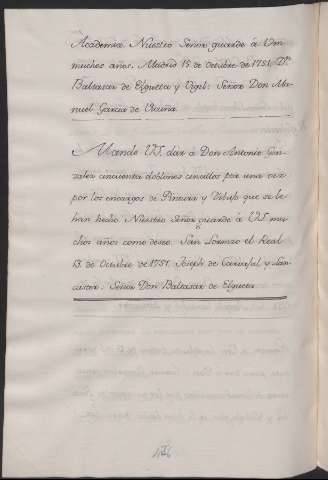 Academia. Nuestro Señor guarde à Vm
muchos años. Madrid 15 de Octubre de 1751. Dn.
Baltasar de Elgueta y Vigil: Señor Don Ma-
nuel Garcia de Vicuña.
Mande V.S. dar à Don Antonio Gon-
zalez cincuenta doblones sencillos por una vez
por los encargos de Pintura y Dibujo que se le
han hecho. Nuestro Señor guarde à V.S. mu-
chos años como deseo. San Lorenzo el Real
13. de Octubre de 1751. Joseph de Carvajal y Lan-
caster. Señor Don Baltasar de Elgueta.